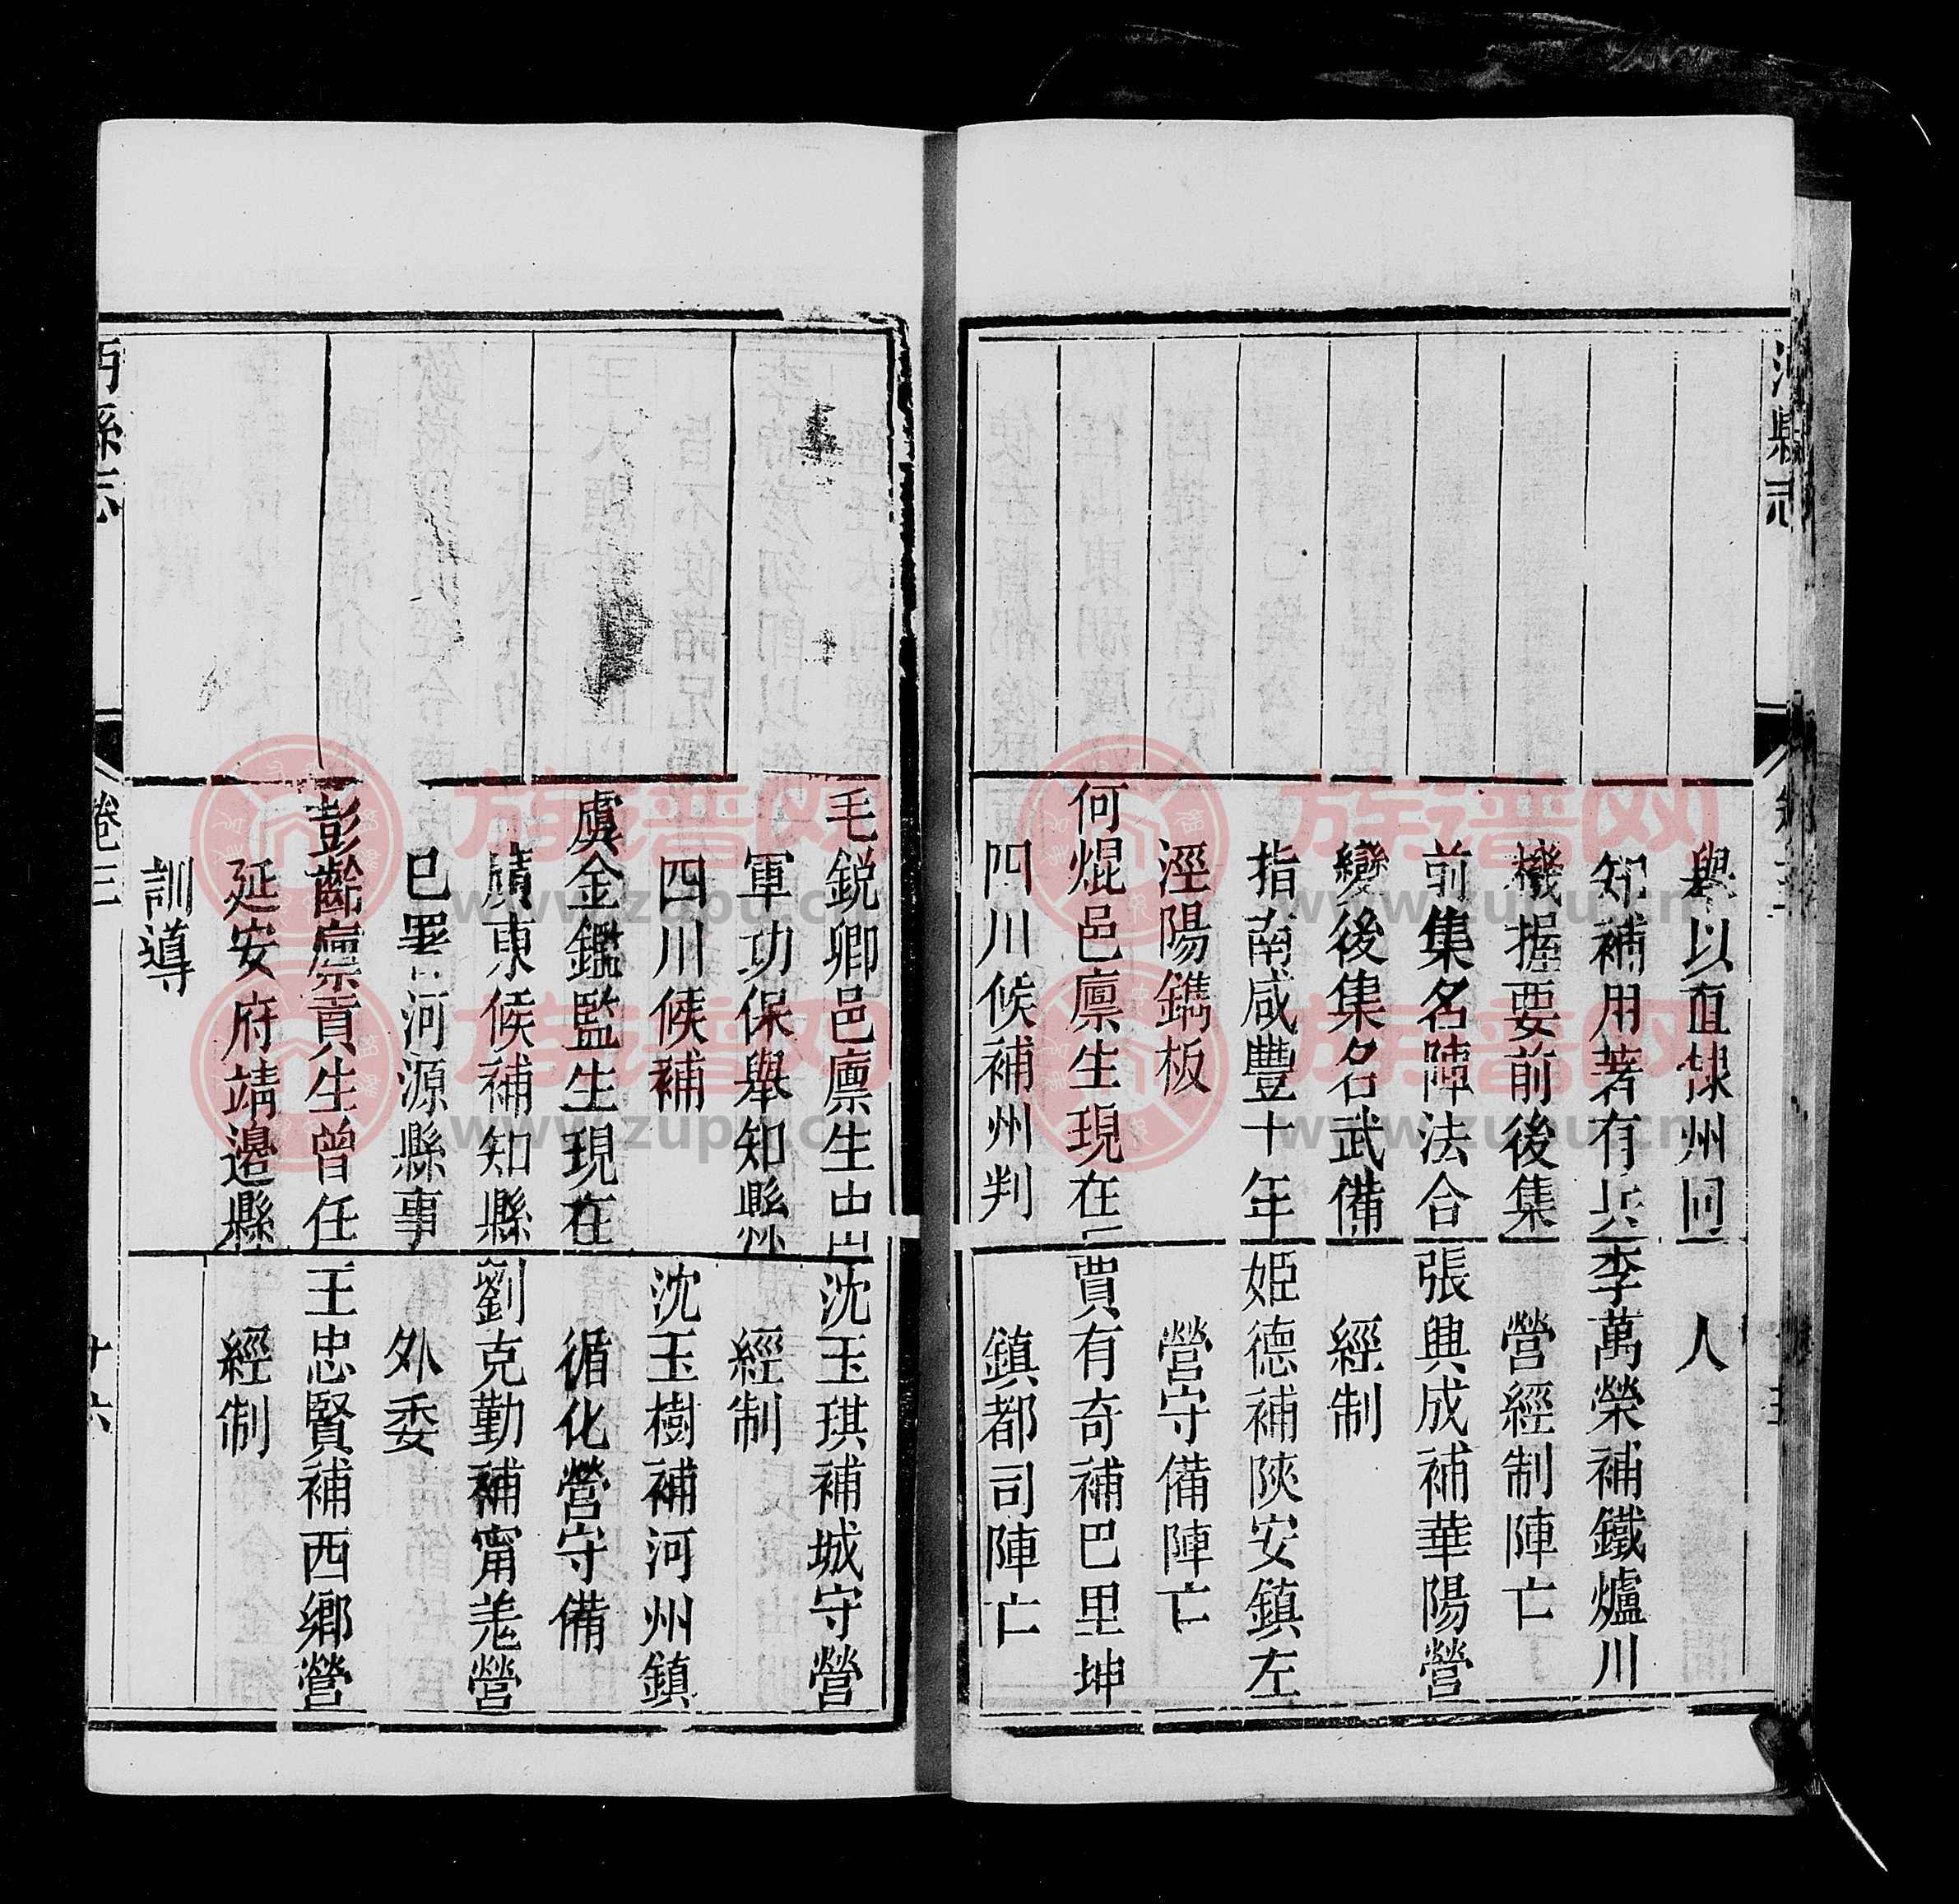 沔縣志
舉以直隸州同
知補用著有兵
機握要前後集
前集名陣法合
變後集名武備
指南咸豐十年
涇陽鐫板
何焜邑廩生現在
四川候補州判
人
李萬榮補鐵爐川
營經制陣亡
張興成補華陽營
經制
姬德補陝安鎮左
營守備陣亡
賈有奇補巴里坤
鎮都司陣亡
毛銳卿邑廩生由
軍功保舉知縣
四川候補
虞金鑑監生現在
廣東候補知縣
已署河源縣事
彭齡廩貢生曾任
延安府靖邊縣
訓導
沈玉琪補城守營
經制
沈玉樹補河州鎮
循化營守備
劉克勤補甯羌營
外委
王忠賢補西鄉營
經制
沔縣志
卷三
十六
族譜网
www.zupu.cn
族譜网
www.zupu.cn
族譜网
www.zupu.cn
族譜网
www.zupu.cn